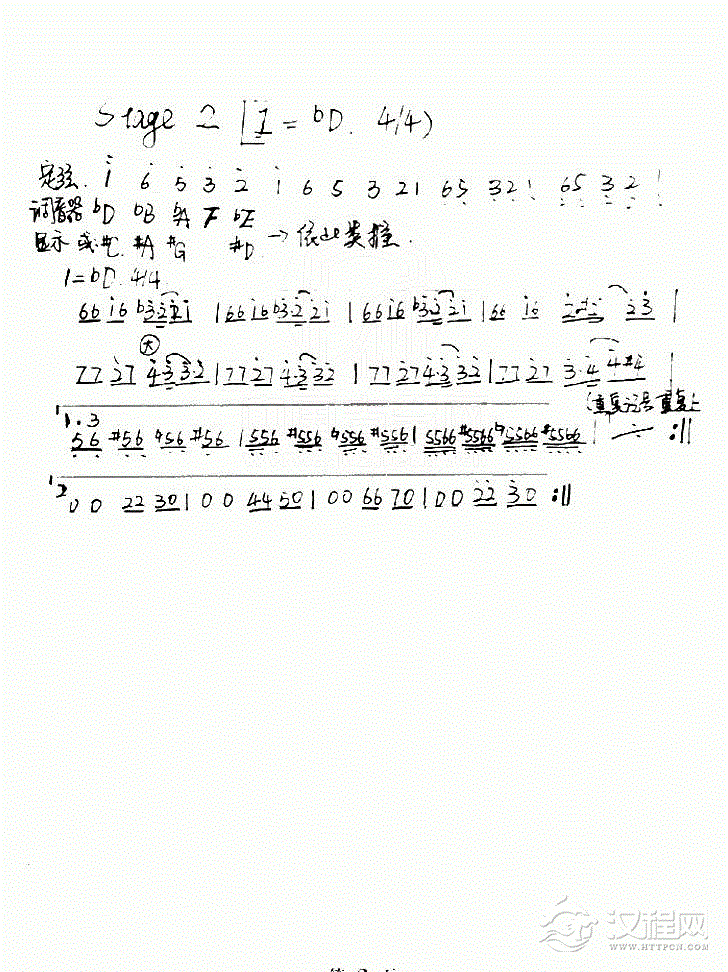 Stage 2 [1 = bD. 4/4)
定弦. i 6 5 3 2 i 6 5 3 2 1 6 5 3 2 1 6 5 3 2 1
调音器 bD bB bA F bE
显示 或 #C #A #G #D → 依此类推.
1=bD. 4/4
66 i6 b3·2 2i | 66 i6 b3·2 2i | 66 i6 b3·2 2i | 66 i6 23 |
大
77 27 4·3 3·2 | 77 27 4·3 32 | 77 27 4·3 32 | 77 27 3·4 4#4 |
(重复记号 重复上
1.3
56 #56 ♮56 #56 | 556 #556 ♮556 #556 | 5566 #5566 ♮5566 #5566 | :||
2
0 0 22 30 | 0 0 44 50 | 0 0 66 70 | 0 0 22 30 :||
汉程网
HTTPCN.COM